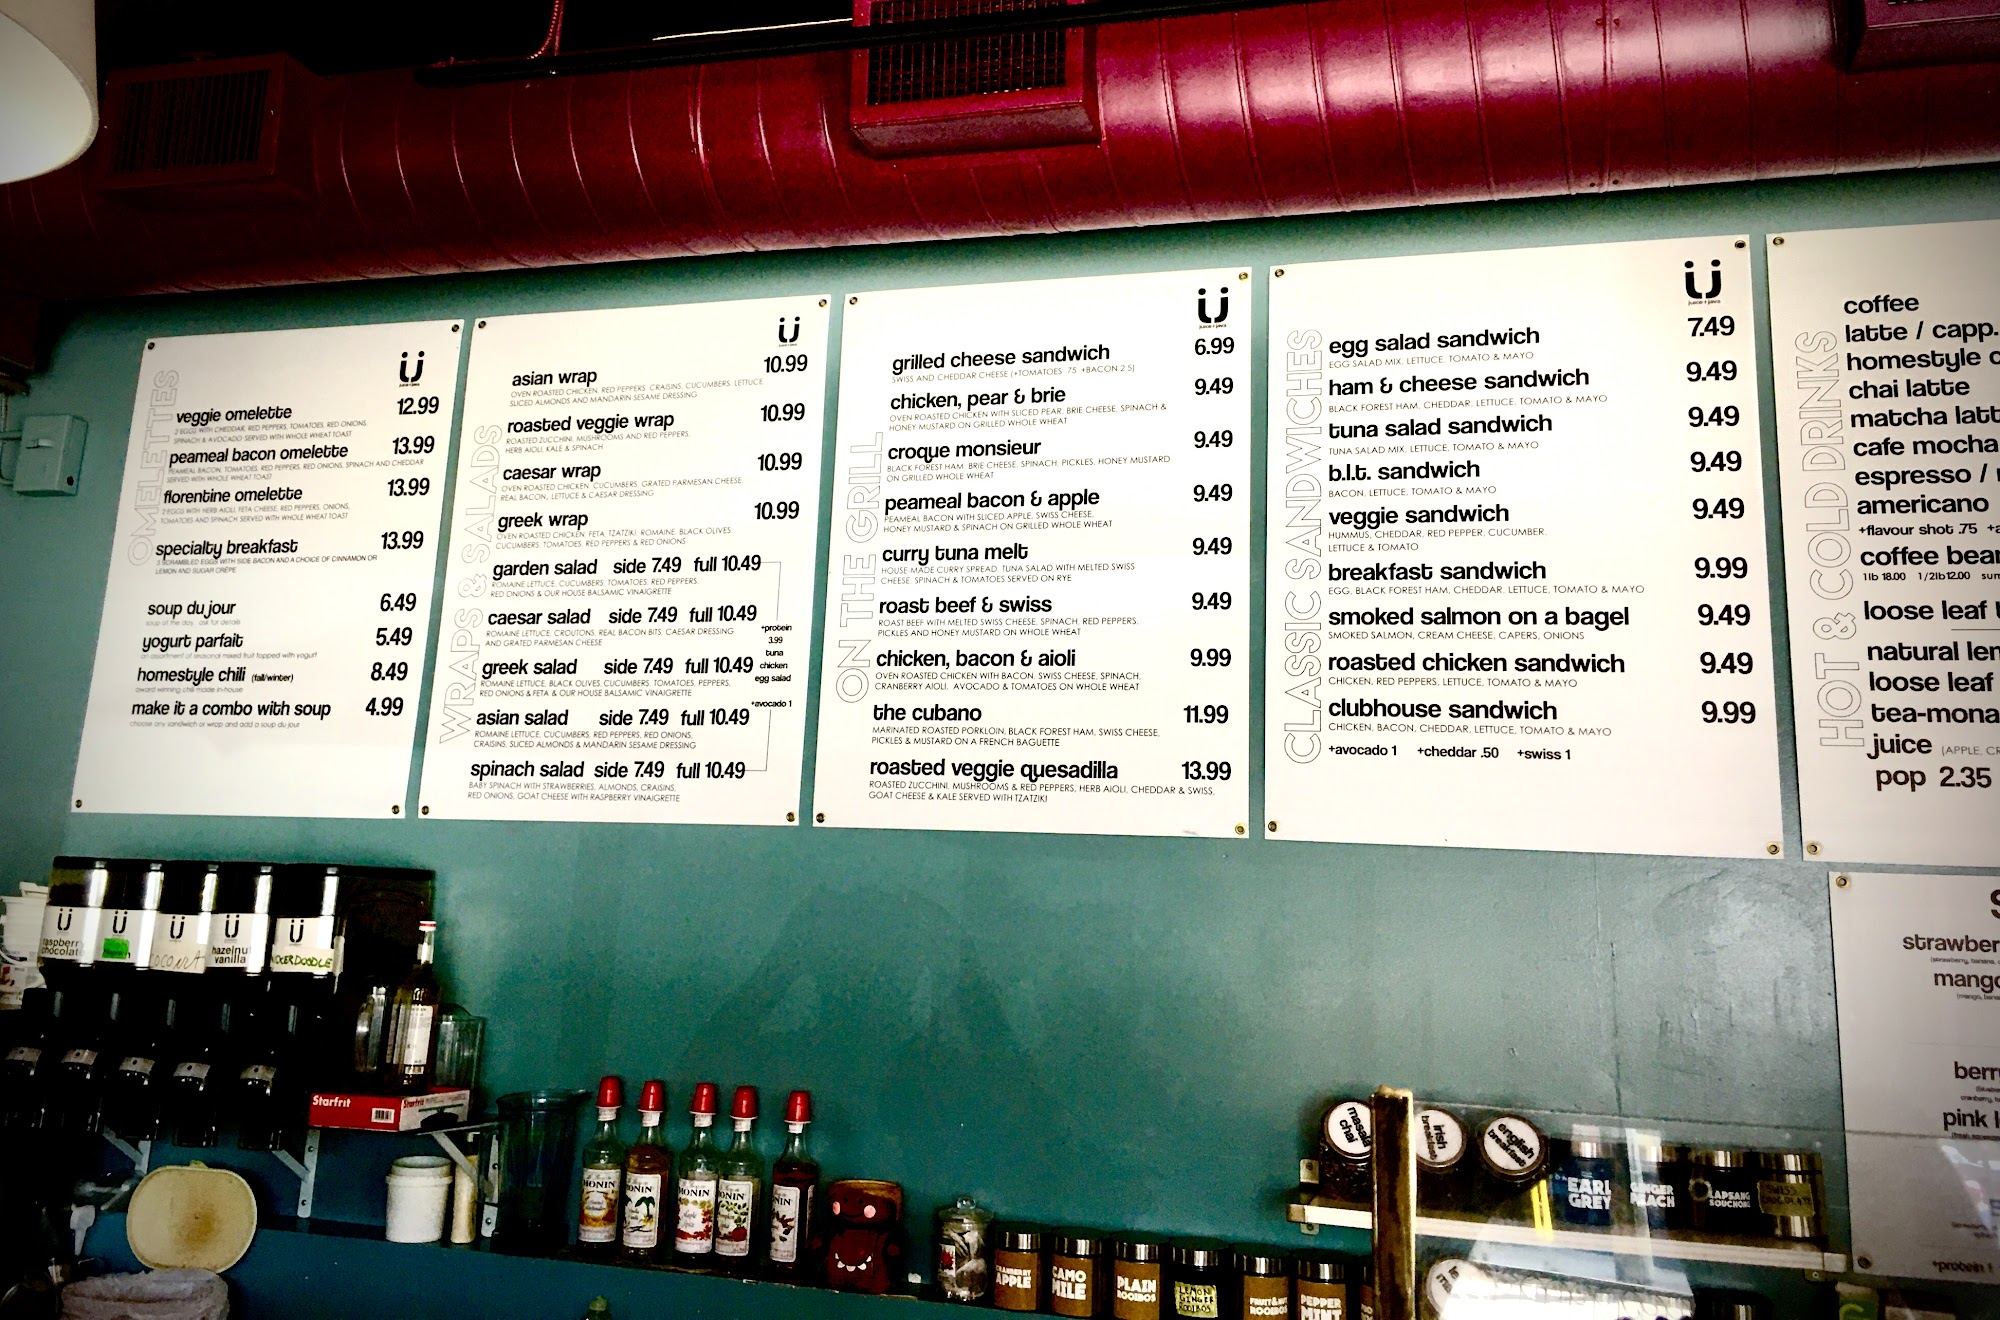 OMELETTES
veggie omelette 12.99
2 EGGS WITH CHEDDAR, RED PEPPERS, TOMATOES, RED ONIONS,
SPINACH & AVOCADO SERVED WITH WHOLE WHEAT TOAST
peameal bacon omelette 13.99
PEAMEAL BACON, TOMATOES, RED PEPPERS, RED ONIONS, SPINACH AND CHEDDAR
SERVED WITH WHOLE WHEAT TOAST
florentine omelette 13.99
2 EGGS WITH HERB AIOLI, FETA CHEESE, RED PEPPERS, ONIONS,
TOMATOES AND SPINACH SERVED WITH WHOLE WHEAT TOAST
specialty breakfast 13.99
3 SCRAMBLED EGGS WITH SIDE BACON AND A CHOICE OF CINNAMON OR
LEMON AND SUGAR CRÊPE
soup du jour 6.49
soup of the day . ask for details
yogurt parfait 5.49
an assortment of seasonal mixed fruit topped with yogurt
homestyle chili (fall/winter) 8.49
award winning chili made in-house
make it a combo with soup 4.99
choose any sandwich or wrap and add a soup du jour
juice + java
WRAPS & SALADS
asian wrap 10.99
OVEN ROASTED CHICKEN, RED PEPPERS, CRAISINS, CUCUMBERS, LETTUCE,
SLICED ALMONDS AND MANDARIN SESAME DRESSING
roasted veggie wrap 10.99
ROASTED ZUCCHINI, MUSHROOMS AND RED PEPPERS,
HERB AIOLI, KALE & SPINACH
caesar wrap 10.99
OVEN ROASTED CHICKEN, CUCUMBERS, GRATED PARMESAN CHEESE,
REAL BACON, LETTUCE & CAESAR DRESSING
greek wrap 10.99
OVEN ROASTED CHICKEN, FETA, TZATZIKI, ROMAINE, BLACK OLIVES
CUCUMBERS, TOMATOES, RED PEPPERS & RED ONIONS
garden salad side 7.49 full 10.49
ROMAINE LETTUCE, CUCUMBERS, TOMATOES, RED PEPPERS,
RED ONIONS & OUR HOUSE BALSAMIC VINAIGRETTE
caesar salad side 7.49 full 10.49
ROMAINE LETTUCE, CROUTONS, REAL BACON BITS, CAESAR DRESSING
AND GRATED PARMESAN CHEESE
greek salad side 7.49 full 10.49
ROMAINE LETTUCE, BLACK OLIVES, CUCUMBERS, TOMATOES, PEPPERS,
RED ONIONS & FETA & OUR HOUSE BALSAMIC VINAIGRETTE
asian salad side 7.49 full 10.49
ROMAINE LETTUCE, CUCUMBERS, RED PEPPERS, RED ONIONS,
CRAISINS, SLICED ALMONDS & MANDARIN SESAME DRESSING
spinach salad side 7.49 full 10.49
BABY SPINACH WITH STRAWBERRIES, ALMONDS, CRAISINS,
RED ONIONS, GOAT CHEESE WITH RASPBERRY VINAIGRETTE
+protein
3.99
tuna
chicken
egg salad
+avocado 1
juice + java
ON THE GRILL
grilled cheese sandwich 6.99
SWISS AND CHEDDAR CHEESE (+TOMATOES .75 +BACON 2.5)
chicken, pear & brie 9.49
OVEN ROASTED CHICKEN WITH SLICED PEAR, BRIE CHEESE, SPINACH &
HONEY MUSTARD ON GRILLED WHOLE WHEAT
croque monsieur 9.49
BLACK FOREST HAM, BRIE CHEESE, SPINACH, PICKLES, HONEY MUSTARD
ON GRILLED WHOLE WHEAT
peameal bacon & apple 9.49
PEAMEAL BACON WITH SLICED APPLE, SWISS CHEESE,
HONEY MUSTARD & SPINACH ON GRILLED WHOLE WHEAT
curry tuna melt 9.49
HOUSE-MADE CURRY SPREAD, TUNA SALAD WITH MELTED SWISS
CHEESE, SPINACH & TOMATOES SERVED ON RYE
roast beef & swiss 9.49
ROAST BEEF WITH MELTED SWISS CHEESE, SPINACH, RED PEPPERS,
PICKLES AND HONEY MUSTARD ON WHOLE WHEAT
chicken, bacon & aioli 9.99
OVEN ROASTED CHICKEN WITH BACON, SWISS CHEESE, SPINACH,
CRANBERRY AIOLI, AVOCADO & TOMATOES ON WHOLE WHEAT
the cubano 11.99
MARINATED ROASTED PORKLOIN, BLACK FOREST HAM, SWISS CHEESE,
PICKLES & MUSTARD ON A FRENCH BAGUETTE
roasted veggie quesadilla 13.99
ROASTED ZUCCHINI, MUSHROOMS & RED PEPPERS, HERB AIOLI, CHEDDAR & SWISS,
GOAT CHEESE & KALE SERVED WITH TZATZIKI
juice + java
CLASSIC SANDWICHES
egg salad sandwich 7.49
EGG SALAD MIX, LETTUCE, TOMATO & MAYO
ham & cheese sandwich 9.49
BLACK FOREST HAM, CHEDDAR, LETTUCE, TOMATO & MAYO
tuna salad sandwich 9.49
TUNA SALAD MIX, LETTUCE, TOMATO & MAYO
b.l.t. sandwich 9.49
BACON, LETTUCE, TOMATO & MAYO
veggie sandwich 9.49
HUMMUS, CHEDDAR, RED PEPPER, CUCUMBER,
LETTUCE & TOMATO
breakfast sandwich 9.99
EGG, BLACK FOREST HAM, CHEDDAR, LETTUCE, TOMATO & MAYO
smoked salmon on a bagel 9.49
SMOKED SALMON, CREAM CHEESE, CAPERS, ONIONS
roasted chicken sandwich 9.49
CHICKEN, RED PEPPERS, LETTUCE, TOMATO & MAYO
clubhouse sandwich 9.99
CHICKEN, BACON, CHEDDAR, LETTUCE, TOMATO & MAYO
+avocado 1 +cheddar .50 +swiss 1
juice + java
HOT & COLD DRINKS
coffee
latte / capp.
homestyle
chai latte
matcha latt
cafe mocha
espresso /
americano
+flavour shot .75
coffee bear
1lb 18.00 1/2lb 12.00
loose leaf
natural
loose leaf
tea-mona
juice (APPLE,
pop 2.35
strawber
mango
berr
pink
+protein 1
raspberry
chocolate
COCONUT
hazelnut
vanilla
Starfrit
Starfrit
MONIN
MONIN
MONIN
MONIN
MONIN
masala
chai
irish
breakfast
english
breakfast
EARL
GREY
GINGER
PEACH
LAPSANG
SOUCHONG
SWISS
CHOCOLATE
CRANBERRY
APPLE
CAMO
MILE
PLAIN
ROOIBOS
LEMON
GINGER
ROOIBOS
FRUIT & NUT
ROOIBOS
PEPPER
MINT